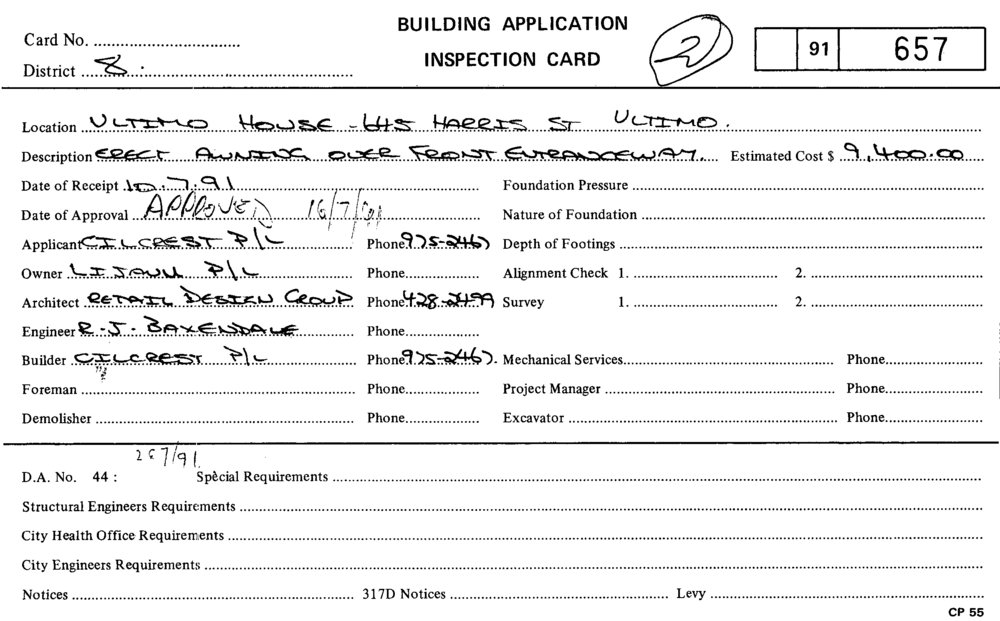 BUILDING APPLICATION
Card No. 2 91 657
INSPECTION CARD
District 8
Location ULTIMO HOUSE - 645 HARRIS ST ULTIMO.
Description ERECT AWNING OVER FRONT ENTRANCEWAY. Estimated Cost $ 9,400.00
Date of Receipt 10.7.91 Foundation Pressure
Date of Approval APPROVED 16/7/91 Nature of Foundation
Applicant CILCREST P/L Phone 975-2467 Depth of Footings
Owner P/L Phone Alignment Check 1. 2.
Architect RETAIL DESIGN GROUP Phone 428-2499 Survey 1. 2.
Engineer R.J. BAXENDALE Phone
Builder CILCREST P/L Phone 975-2467. Mechanical Services Phone
Foreman Phone Project Manager Phone
Demolisher Phone Excavator Phone
267/91
D.A. No. 44 : Special Requirements
Structural Engineers Requirements
City Health Office Requirements
City Engineers Requirements
Notices 317D Notices Levy
CP 55